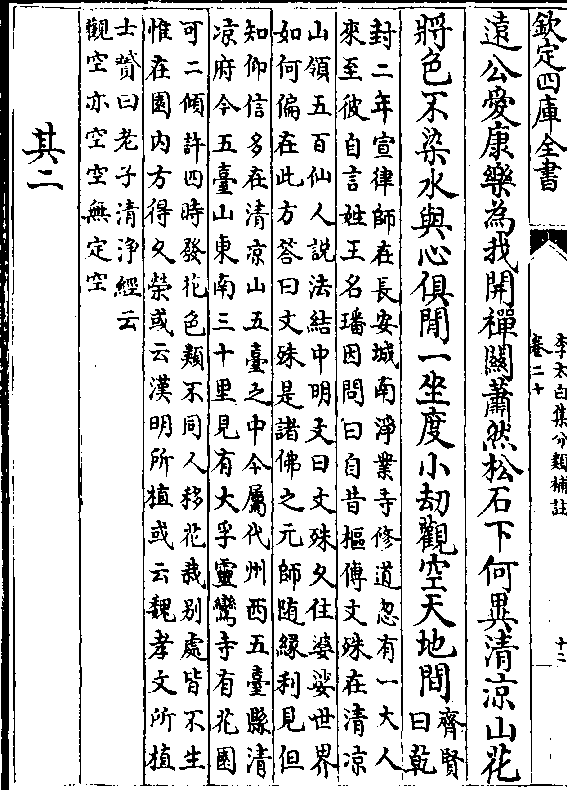 欽定四庫全書
李太白集分類補註
卷二十
十二
遠公愛康樂為我開禪關蕭然松石下何異清凉山花
將色不染水與心俱閒一坐度小劫觀空天地間
齊賢
曰乾
封二年宣律師在長安城南淨業寺修道忽有一大人
來至彼自言姓王名璠因問曰自昔樞傳文殊在清凉
山領五百仙人説法結中明文曰文殊久住婆娑世界
如何偏在此方答曰文殊是諸佛之元師随縁利見但
知仰信多在清凉山五臺之中今屬代州西五臺縣清
凉府今五臺山東南三十里見有大孚靈鸞寺有花園
可二傾許四時發花色類不同人移花栽别處皆不生
惟在園内方得久榮或云漢明所植或云魏孝文所植
士贇曰老子清淨經云
觀空亦空空無定空
其二